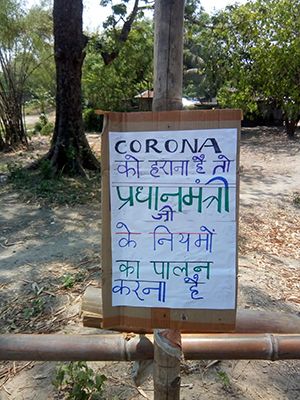 CORONA
को हराना है तो
प्रधानमंत्री
जी
के नियमों
का पालन
करना है